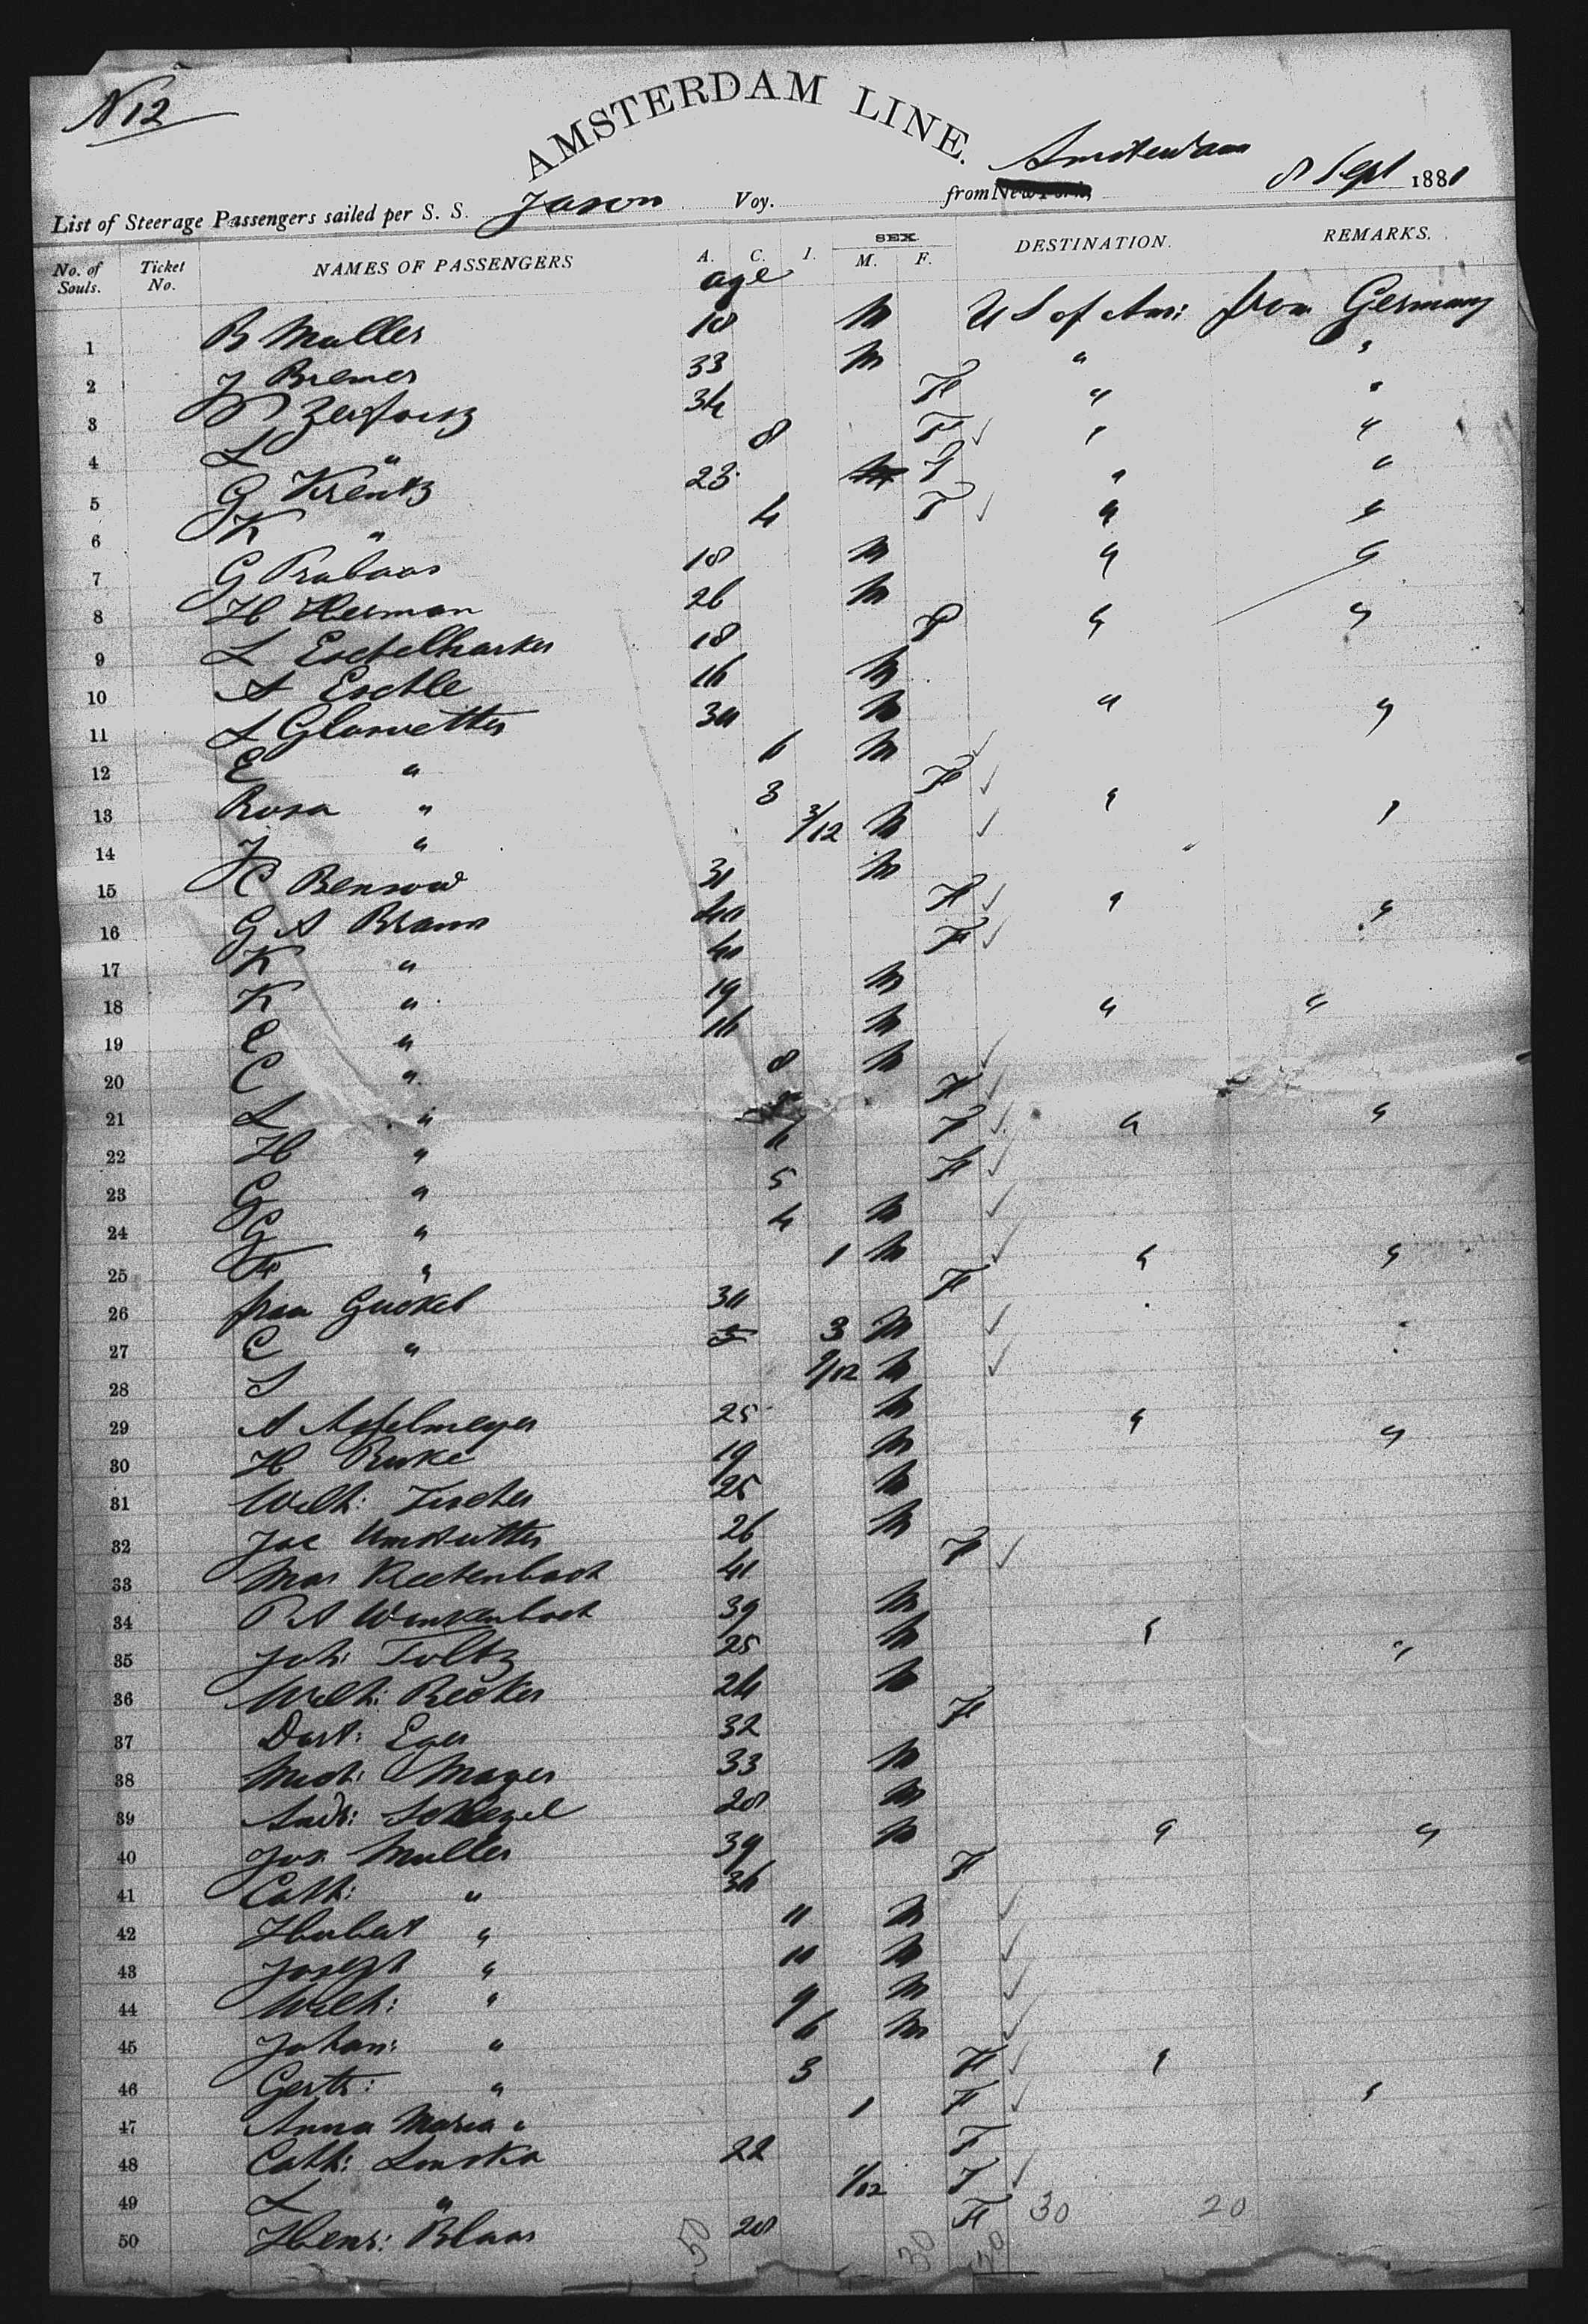 N 12
AMSTERDAM LINE.
List of Steerage Passengers sailed per S. S. Jason Voy. from New York, Amsterdam 8 Sept 1881
No. of Souls. Ticket No. NAMES OF PASSENGERS A. C. I. SEX M. F. DESTINATION. REMARKS.
age
1 B Muller 18 M U S of Am: from Germany
2 J Bremer 33 M " "
3 34 F " "
4 L " 8 F ✓ " "
5 G Krentz 23 M F " "
6 K " 4 F ✓ " "
7 G 18 M " "
8 H Herman 26 M
9 L 18 F " "
10 A Eschle 16 M
11 L 30 M " "
12 E " 6 M ✓
13 Rosa " 3 F ✓ " "
14 J " 3/12 M ✓
15 C Bensow 31 M
16 G A Braun 40 F ✓ " "
17 K " 40 F ✓
18 K " 19 M
19 E " 16 M " "
20 C " 8 M ✓
21 L " F ✓
22 H " F ✓ " "
23 G " 5 F ✓
24 G " 4 M ✓
25 F " 1 M ✓ " "
26 frau Guckel 30 F
27 C " 5 3 M ✓
28 S 9/12 M ✓
29 A Apfelmeyer 25 M " "
30 H Ruke 19 M
31 Wilh: Fischer 25 M
32 Jac Umstutter 26 M
33 Mar 41 F ✓
34 P A Winkenbach 39 M
35 Joh: Foltz 25 M " "
36 Wilh: Becker 24 M
37 Dort: Eger 32 F
38 Mich: Mayer 33 M
39 Andr: Schlegel 28 M
40 Jos. Muller 39 M " "
41 Cath: " 36 F
42 Hubert " 11 M ✓
43 Joseph " 10 M ✓
44 Wilh: " 9 M ✓
45 Johan: " 6 M ✓
46 Gertr: " 3 F ✓ "
47 Anna Maria " 1 F ✓ "
48 Cath: Linska 22 F
49 L " 1/12 F ✓
50 Henr: Blaas 28 F 30 20
50 30 20